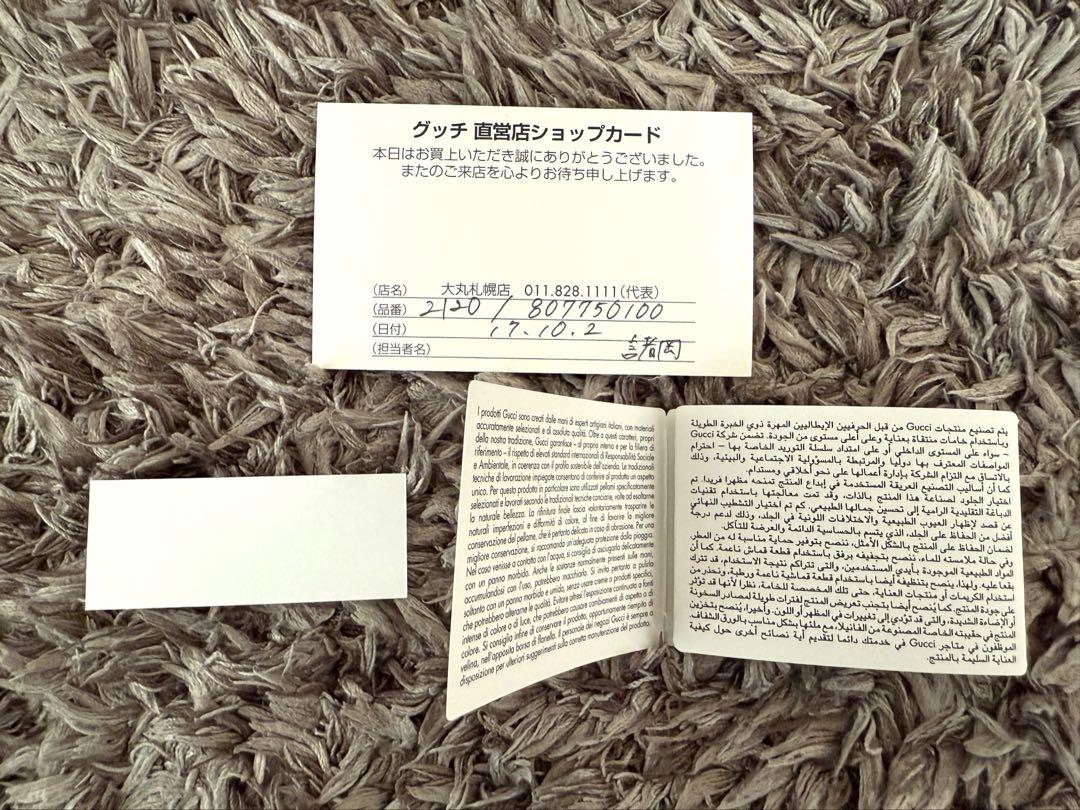 グッチ 直営店ショップカード
本日はお買上いただき誠にありがとうございました。
またのご来店を心よりお待ち申し上げます。
(店名) 大丸札幌店 011.828.1111(代表)
(品番) 2120 / 807750100
(日付) 17.10.2
(担当者名)
I prodotti Gucci sono creati dalle mani di esperti artigiani italiani, con materiali
accuratamente selezionati e di assoluta qualità. Oltre a questi caratteri, propri
della nostra tradizione, Gucci garantisce - al proprio interno e per la filiera di
riferimento – il rispetto di elevati standard internazionali di Responsabilità Sociale
e Ambientale, in coerenza con il profilo sostenibile dell'azienda. Le tradizionali
tecniche di lavorazione impiegate consentono di conferire al prodotto un aspetto
unico. Per questo prodotto in particolare sono stati utilizzati pellami specificatamente
selezionati e lavorati secondo le tradizionali tecniche conciarie, volte ad esaltarne
la naturale bellezza. La rifinitura finale lascia volontariamente trasparire le
naturali imperfezioni e difformità di colore, al fine di favorire la migliore
conservazione del pellame, che è pertanto delicato in caso di abrasione. Per una
migliore conservazione, si raccomanda un'adeguata protezione dalla pioggia.
Nel caso venisse a contatto con l'acqua, si consiglia di asciugarlo delicatamente
con un panno morbido. Anche le sostanze normalmente presenti sulle mani,
accumulandosi con l'uso, potrebbero macchiarlo. Si invita pertanto a pulirlo
soltanto con un panno morbido e umido, senza usare creme o prodotti specifici,
che potrebbero alterarne le qualità. Evitare altresì l'esposizione continuata a fonti
intense di calore o di luce, che potrebbero causare cambiamenti di aspetto o di
colore. Si consiglia infine di conservare il prodotto, opportunamente riempito di
velina, nell'apposita borsa di flanella. Il personale dei negozi Gucci è sempre a
disposizione per ulteriori suggerimenti sulla corretta manutenzione del prodotto.
يتم تصنيع منتجات Gucci من قبل الحرفيين الإيطاليين المهرة ذوي الخبرة الطويلة
وباستخدام خامات منتقاة بعناية وعلى أعلى مستوى من الجودة. تضمن شركة Gucci
– سواء على المستوى الداخلي أو على امتداد سلسلة التوريد الخاصة بها – احترام
المواصفات المعترف بها دوليا والمرتبطة بالمسؤولية الاجتماعية والبيئية، وذلك
بالاتساق مع التزام الشركة بإدارة أعمالها على نحو أخلاقي ومستدام.
كما أن أساليب التصنيع العريقة المستخدمة في إبداع المنتج تمنحه مظهرا فريدا. تم
اختيار الجلود لصناعة هذا المنتج بالذات، وقد تمت معالجتها باستخدام تقنيات
الدباغة التقليدية الرامية إلى تحسين جمالها الطبيعي. كم تم اختيار التشطيب النهائي
عن قصد لإظهار العيوب الطبيعية والاختلافات اللونية في الجلد، وذلك لدعم درجة
أفضل من الحفاظ على الجلد، الذي يتسم بالحساسية الدائمة والعرضة للتآكل.
لضمان الحفاظ على المنتج بالشكل الأمثل، ننصح بتوفير حماية مناسبة له من المطر.
وفي حالة ملامسته للماء، ننصح بتجفيفه برفق باستخدام قطعة قماش ناعمة. كما أن
المواد الطبيعية الموجودة بأيدي المستخدمين، والتي تتراكم نتيجة الاستخدام، قد تترك
بقعا عليه. ولهذا، ينصح بتنظيفه أيضا باستخدام قطعة قماش ناعمة ورطبة ونحذر من
استخدام الكريمات أو منتجات العناية، حتى تلك المخصصة للعناية، نظرا لأنها قد تؤثر
على جودة المنتج. كما يُنصح أيضا بتجنب تعريض المنتج لفترات طويلة لمصادر السخونة
أو الإضاءة الشديدة، والتي قد تؤدي إلى تغييرات في المظهر أو اللون. وأخيرا، يُنصح بتخزين
المنتج في حقيبته الخاصة المصنوعة من الفانيلا، مع ملئها بشكل مناسب بالورق الشفاف.
الموظفون في متاجر Gucci في خدمتك دائما لتقديم أية نصائح أخرى حول كيفية
العناية السليمة بالمنتج.